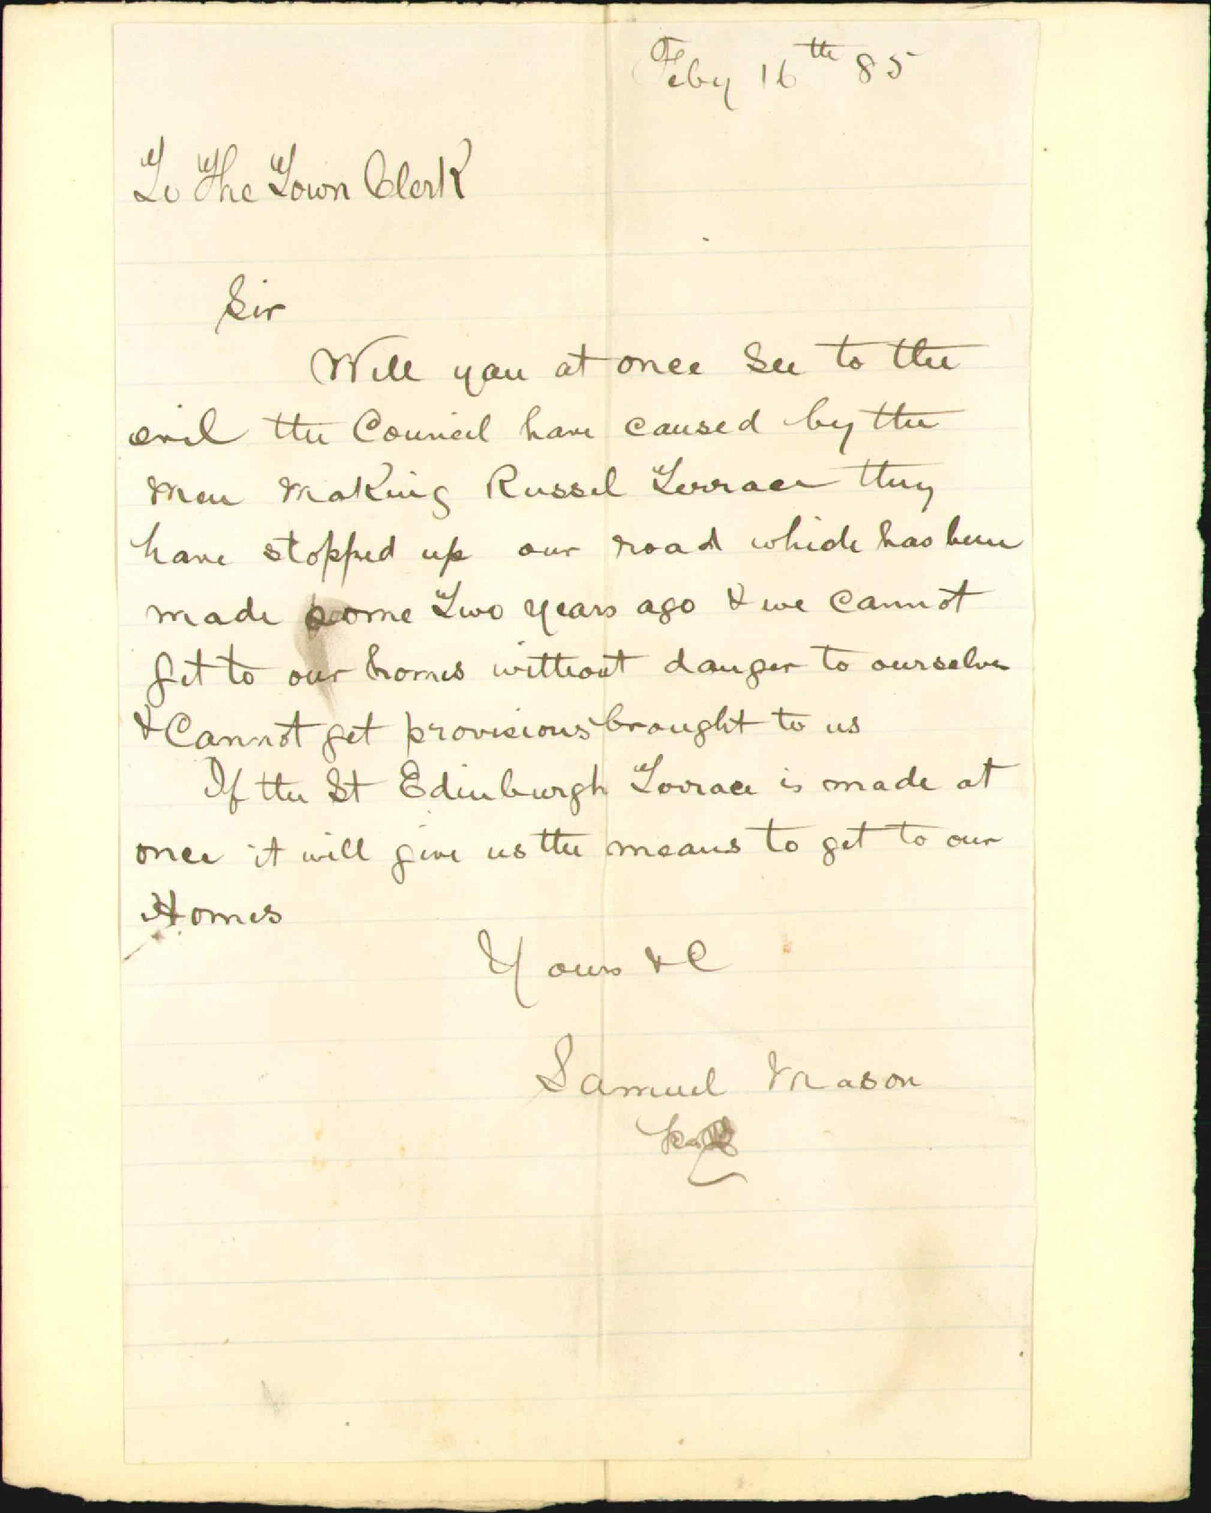 Feby 16th 85
To The Town Clerk
Sir
Will you at once See to the
evil the Council have caused by the
Men Making Russel Terrace they
have stopped up our road which has been
made some Two years ago & we cannot
get to our homes without danger to ourselves
& Cannot get provisions brought to us
If the St Edinburgh Terrace is made at
once it will give us the means to get to our
Homes
Yours &C
Samuel Mason